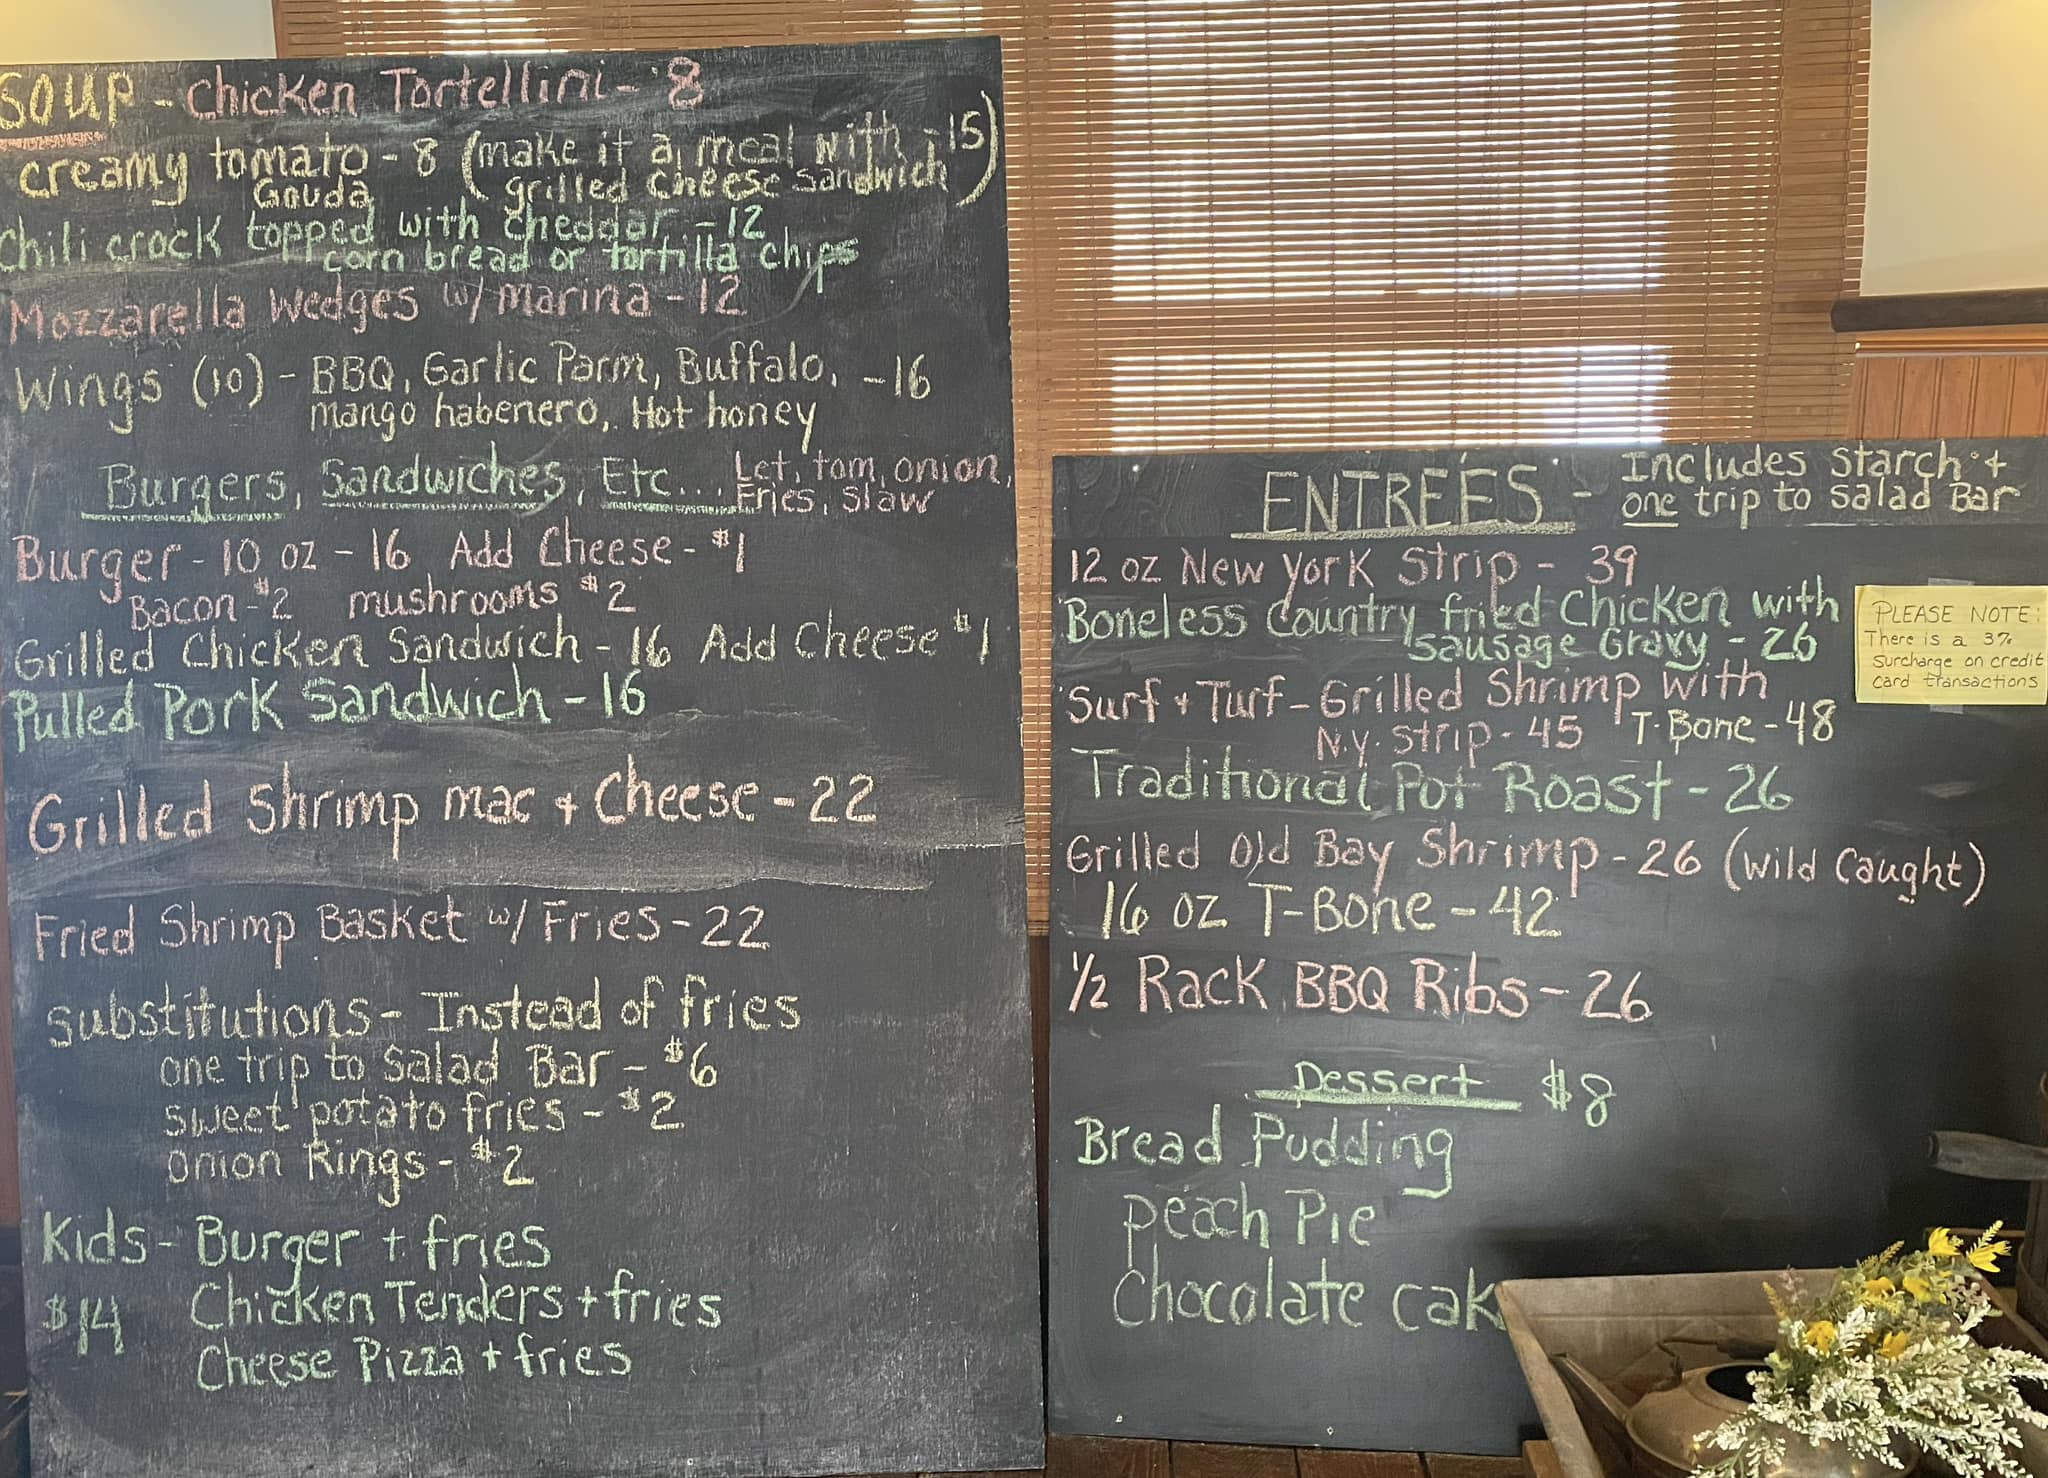 SOUP - Chicken Tortellini - 8
creamy tomato - 8 (make it a meal with -15)
Gouda grilled cheese sandwich
Chili crock topped with cheddar - 12
corn bread or tortilla chips
Mozzarella Wedges w/ marina - 12
Wings (10) - BBQ, Garlic Parm, Buffalo, - 16
mango habenero, Hot honey
Burgers, Sandwiches, Etc... Let, tom, onion,
Fries, slaw
Burger - 10 oz - 16 Add Cheese - $1
Bacon - $2 mushrooms $2
Grilled Chicken Sandwich - 16 Add Cheese $1
Pulled Pork Sandwich - 16
Grilled Shrimp mac + Cheese - 22
Fried Shrimp Basket w/ Fries - 22
Substitutions - Instead of fries
one trip to Salad Bar - $6
sweet potato fries - $2
onion Rings - $2
Kids - Burger + fries
$14 Chicken Tenders + fries
Cheese Pizza + fries
ENTREES - Includes Starch +
one trip to Salad Bar
12 oz New York Strip - 39
Boneless Country fried Chicken with
sausage Gravy - 26
Surf + Turf - Grilled Shrimp with
N.Y. Strip - 45 T-Bone - 48
Traditional Pot Roast - 26
Grilled Old Bay Shrimp - 26 (Wild Caught)
16 oz T-Bone - 42
1/2 Rack BBQ Ribs - 26
Dessert $8
Bread Pudding
peach Pie
Chocolate cak
PLEASE NOTE:
There is a 3%
Surcharge on credit
card transactions